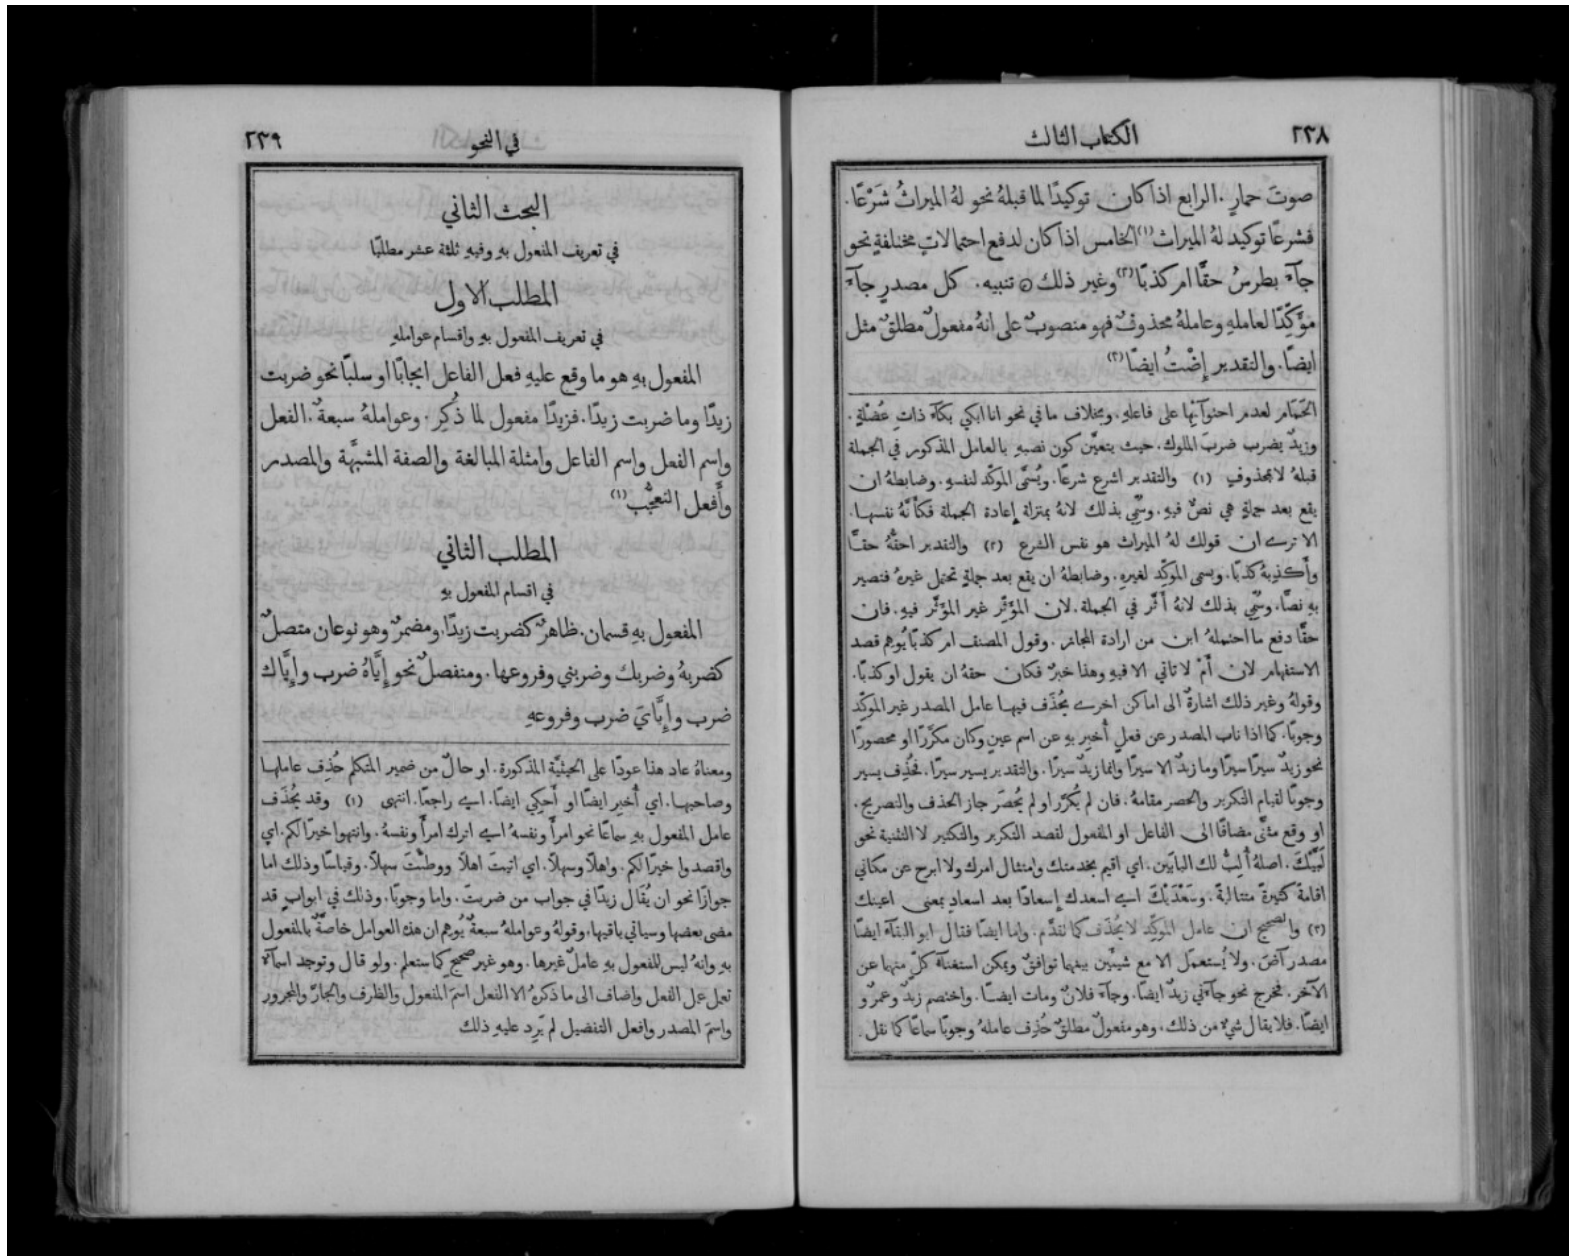 ٢٣٨
الكتاب الثالث
صوتَ حمارٍ. الرابع اذا كان توكيدًا لما قبلهُ نحو لهُ الميراثُ شَرْعًا.
فشرعًا توكيد لهُ الميراث (١) الخامس اذا كان لدفع احتمالاتٍ مختلفةٍ نحو
جآءَ بطرسُ حقًّا ام كذبًا (٢) وغير ذلك ۞ تنبيه. كل مصدرٍ جآءَ
مؤَكِّدًا لعاملهِ وعاملهُ محذوفٌ فهو منصوبٌ على انهُ مفعولٌ مطلقٌ مثل
ايضًا. والتقدير إِضْتُ ايضًا (٣)
الحَمَام لعدم احتوآئِها على فاعلهِ. وبخلاف ما في نحو انا ابكي بكآءَ ذاتِ عُضْلةٍ.
وزيدٌ يضرب ضربَ الملوك. حيث يتعيَّن كون نصبهِ بالعامل المذكور في الجملة
قبلهُ لا بمحذوفٍ (١) والتقدير اشرع شرعًا. ويُسَمَّى الموَكِّد لنفسهِ. وضابطهُ ان
يقع بعد جملةٍ هي نصٌّ فيهِ. وسُمِّي بذلك لانهُ بمنزلة إِعادة الجملة فكأَنَّهُ نفسها.
الا ترى ان قولك لهُ الميراث هو نفس الشرع (٢) والتقدير احقُّهُ حقًّا
وأَكذبهُ كذبًا. ويسمى الموَكِّد لغيرهِ. وضابطهُ ان يقع بعد جملةٍ تحتمل غيرهُ فتصير
بهِ نصًّا. وسُمِّي بذلك لانهُ أَثَّر في الجملة. لان المؤَثِّر غير المؤَثَّر فيهِ. فان
حقًّا دفع ما احتملهُ ابن من ارادة المجاز. وقول المصنف ام كذبًا يُوهِم قصد
الاستفهام لان أَمْ لا تاتي الا فيهِ وهذا خبرٌ فكان حقهُ ان يقول او كذبًا.
وقولهُ وغير ذلك اشارةٌ الى اماكن اخرى يُحذَف فيها عامل المصدر غير الموَكِّد
وجوبًا. كما اذا ناب المصدر عن فعلٍ أُخبِر بهِ عن اسم عينٍ وكان مكرَّرًا او محصورًا
نحو زيدٌ سيرًا سيرًا وما زيدٌ الا سيرًا وانما زيدٌ سيرًا. والتقدير يسير سيرًا. فحُذِف يسير
وجوبًا لقيام التكرير والحصر مقامهُ. فان لم يُكرَّر او لم يُحصَر جاز الحذف والتصريح.
او وقع مثنًّى مضافًا الى الفاعل او المفعول لقصد التكرير والتكثير لا التثنية نحو
لَبَّيْكَ. اصلهُ أُلِبُّ لك البابَين. اي اقيم بخدمتك وامتثال امرك ولا ابرح عن مكاني
اقامةً كثيرةً متتاليةً. وسَعْدَيْكَ اي اسعدك إِسعادًا بعد اسعادٍ بمعنى اعينك
(٣) والصحيح ان عامل الموَكِّد لا يُحذَف كما تقدَّم. واما ايضًا فقال ابو البقآءِ ايضًا
مصدر آضَ. ولا يُستعمَل الا مع شيئَين بينهما توافقٌ ويمكن استغنآءُ كلٍّ منهما عن
الآخر. فخرج نحو جآءَني زيدٌ ايضًا. وجآءَ فلانٌ ومات ايضًا. واختصم زيدٌ وعمرٌو
ايضًا. فلا يقال شيءٌ من ذلك. وهو مفعولٌ مطلقٌ حُذِف عاملهُ وجوبًا سماعًا كما نقل.
في النحو
٢٣٩
البحث الثاني
في تعريف المفعول بهِ وفيهِ ثلثة عشر مطلبًا
المطلب الاول
في تعريف المفعول بهِ واقسام عواملهِ
المفعول بهِ هو ما وقع عليهِ فعل الفاعل ايجابًا او سلبًا نحو ضربت
زيدًا وما ضربت زيدًا. فزيدًا مفعول لما ذُكِر. وعواملهُ سبعةٌ. الفعل
واسم الفعل واسم الفاعل وامثلة المبالغة والصفة المشبَّهة والمصدر
وأَفعل التعجُّب (١)
المطلب الثاني
في اقسام المفعول بهِ
المفعول بهِ قسمان. ظاهرٌ كضربت زيدًا. ومضمرٌ وهو نوعان متصلٌ
كضربهُ وضربك وضربني وفروعها. ومنفصلٌ نحو إِيَّاهُ ضرب وإِيَّاك
ضرب وإِيَّايَ ضرب وفروعهِ
ومعناهُ عاد هذا عودًا على الحيثيَّة المذكورة. او حالٌ من ضمير المتكلم حُذِف عاملها
وصاحبها. اي أُخبِر ايضًا او أَحكي ايضًا. اي راجعًا. انتهى (١) وقد يُحذَف
عامل المفعول بهِ سماعًا نحو امرأً ونفسهُ اي اترك امرأً ونفسهُ. وانتهوا خيرًا لكم. اي
واقصدوا خيرًا لكم. واهلًا وسهلًا. اي اتيتَ اهلًا ووطئْتَ سهلًا. وقياسًا وذلك اما
جوازًا نحو ان يُقَال زيدًا في جواب من ضربتَ. واما وجوبًا. وذلك في ابوابٍ قد
مضى بعضها وسياتي باقيها. وقولهُ وعواملهُ سبعةٌ يُوهِم ان هذه العوامل خاصَّةٌ بالمفعول
بهِ وانهُ ليس للمفعول بهِ عاملٌ غيرها. وهو غير صحيحٍ كما ستعلم. ولو قال وتوجد اسمآءٌ
تعمل عمل الفعل واضاف الى ما ذكرهُ الا الفعل اسمَ المفعول والظرف والجارّ والمجرور
واسمَ المصدر وافعل التفضيل لم يَرِد عليهِ ذلك